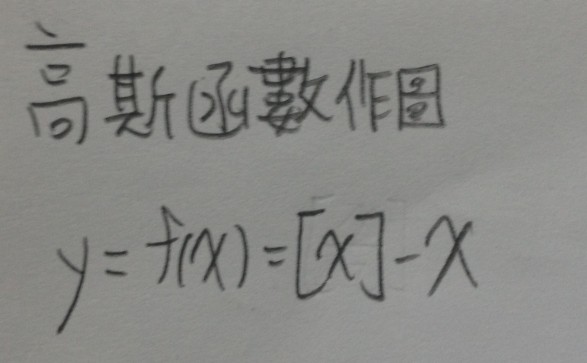 高斯函數作圖
y=f(x)=[x]-x